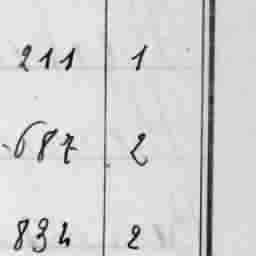 211 1
687 2
834 2